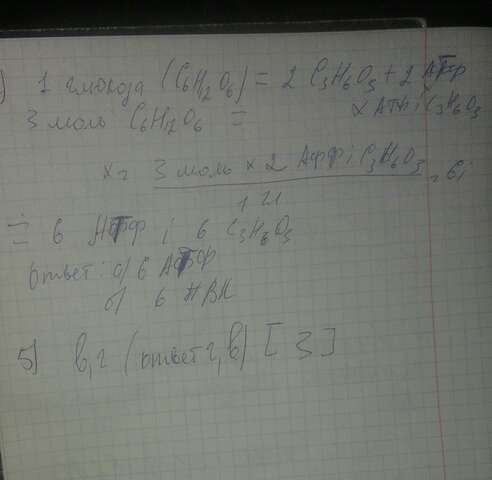 ) 1 глюкоза (C6H12O6) = 2 C3H6O3 + 2 АТФ
3 моль C6H12O6 = x АТФ i C3H6O3
x = 3 моль x 2 АТФ i C3H6O3 = 6 i
1
= 6 АТФ i 6 C3H6O3
Ответ: а) 6 АТФ
б) 6
5) в, г (ответ г, в) [3]